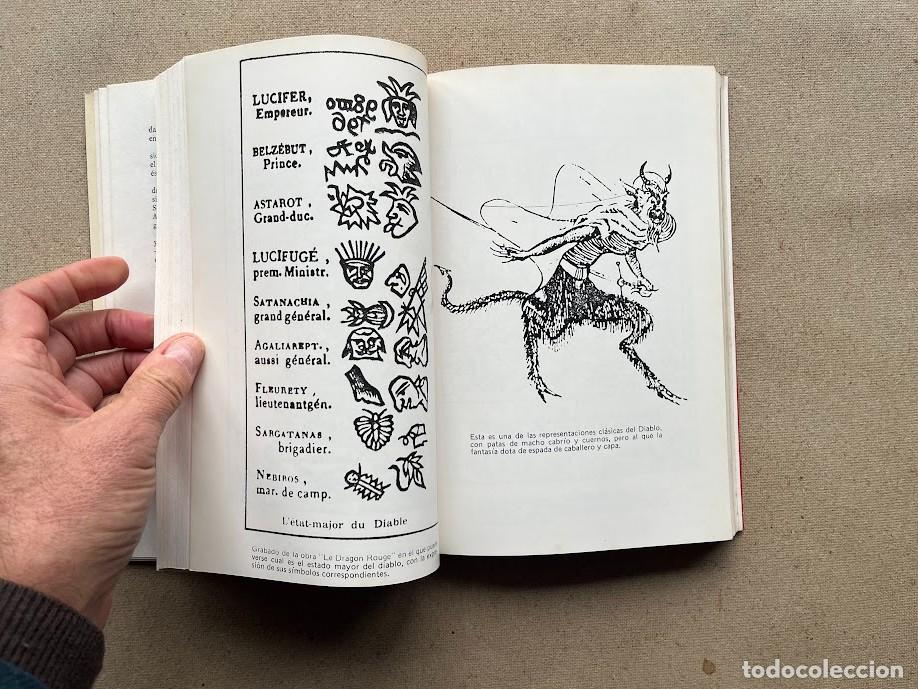 LUCIFER,
Empereur.
BELZÉBUT,
Prince.
ASTAROT,
Grand-duc.
LUCIFUGÉ,
prem. Ministr.
SATANACHIA,
grand général.
AGALIAREPT.,
aussi général.
FLEURETY,
lieutenantgén.
SARGATANAS,
brigadier.
NEBIROS,
mar. de camp.
L'état-major du Diable
Grabado de la obra "Le Dragon Rouge" en el que
verse cual es el estado mayor del diablo, con la
sión de sus símbolos correspondientes.
Esta es una de las representaciones clásicas del Diablo,
con patas de macho cabrío y cuernos, pero al que la
fantasía dota de espada de caballero y capa.
todocoleccion